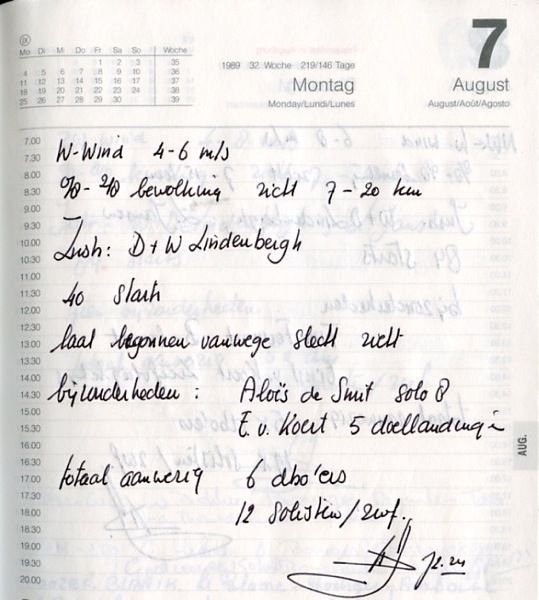 IX
Mo Di Mi Do Fr Sa So Woche
1 2 3 35
4 5 6 7 8 9 10 36
11 12 13 14 15 16 17 37
18 19 20 21 22 23 24 38
25 26 27 28 29 30 39
1989 32. Woche 219/146 Tage
7
Montag
August
Monday/Lundi/Lunes
August/Août/Agosto
7.00
7.30
8.00
8.30
9.00
9.30
10.00
10.30
11.00
11.30
12.00
12.30
13.00
13.30
14.00
14.30
15.00
15.30
16.00
16.30
17.00
17.30
18.00
18.30
19.00
19.30
20.00
W-Wind 4-6 m/s
bevolking zicht 7-20 km
Instr: D+W Lindenbergh
40 starts
laat begonnen vanwege slecht zicht
bijzonderheden: Aloïs de Smit solo 8
E.v. Koert 5 doellandingen
totaal aanwezig 6 dbo'ers
12 solisten/zwf.
AUG.